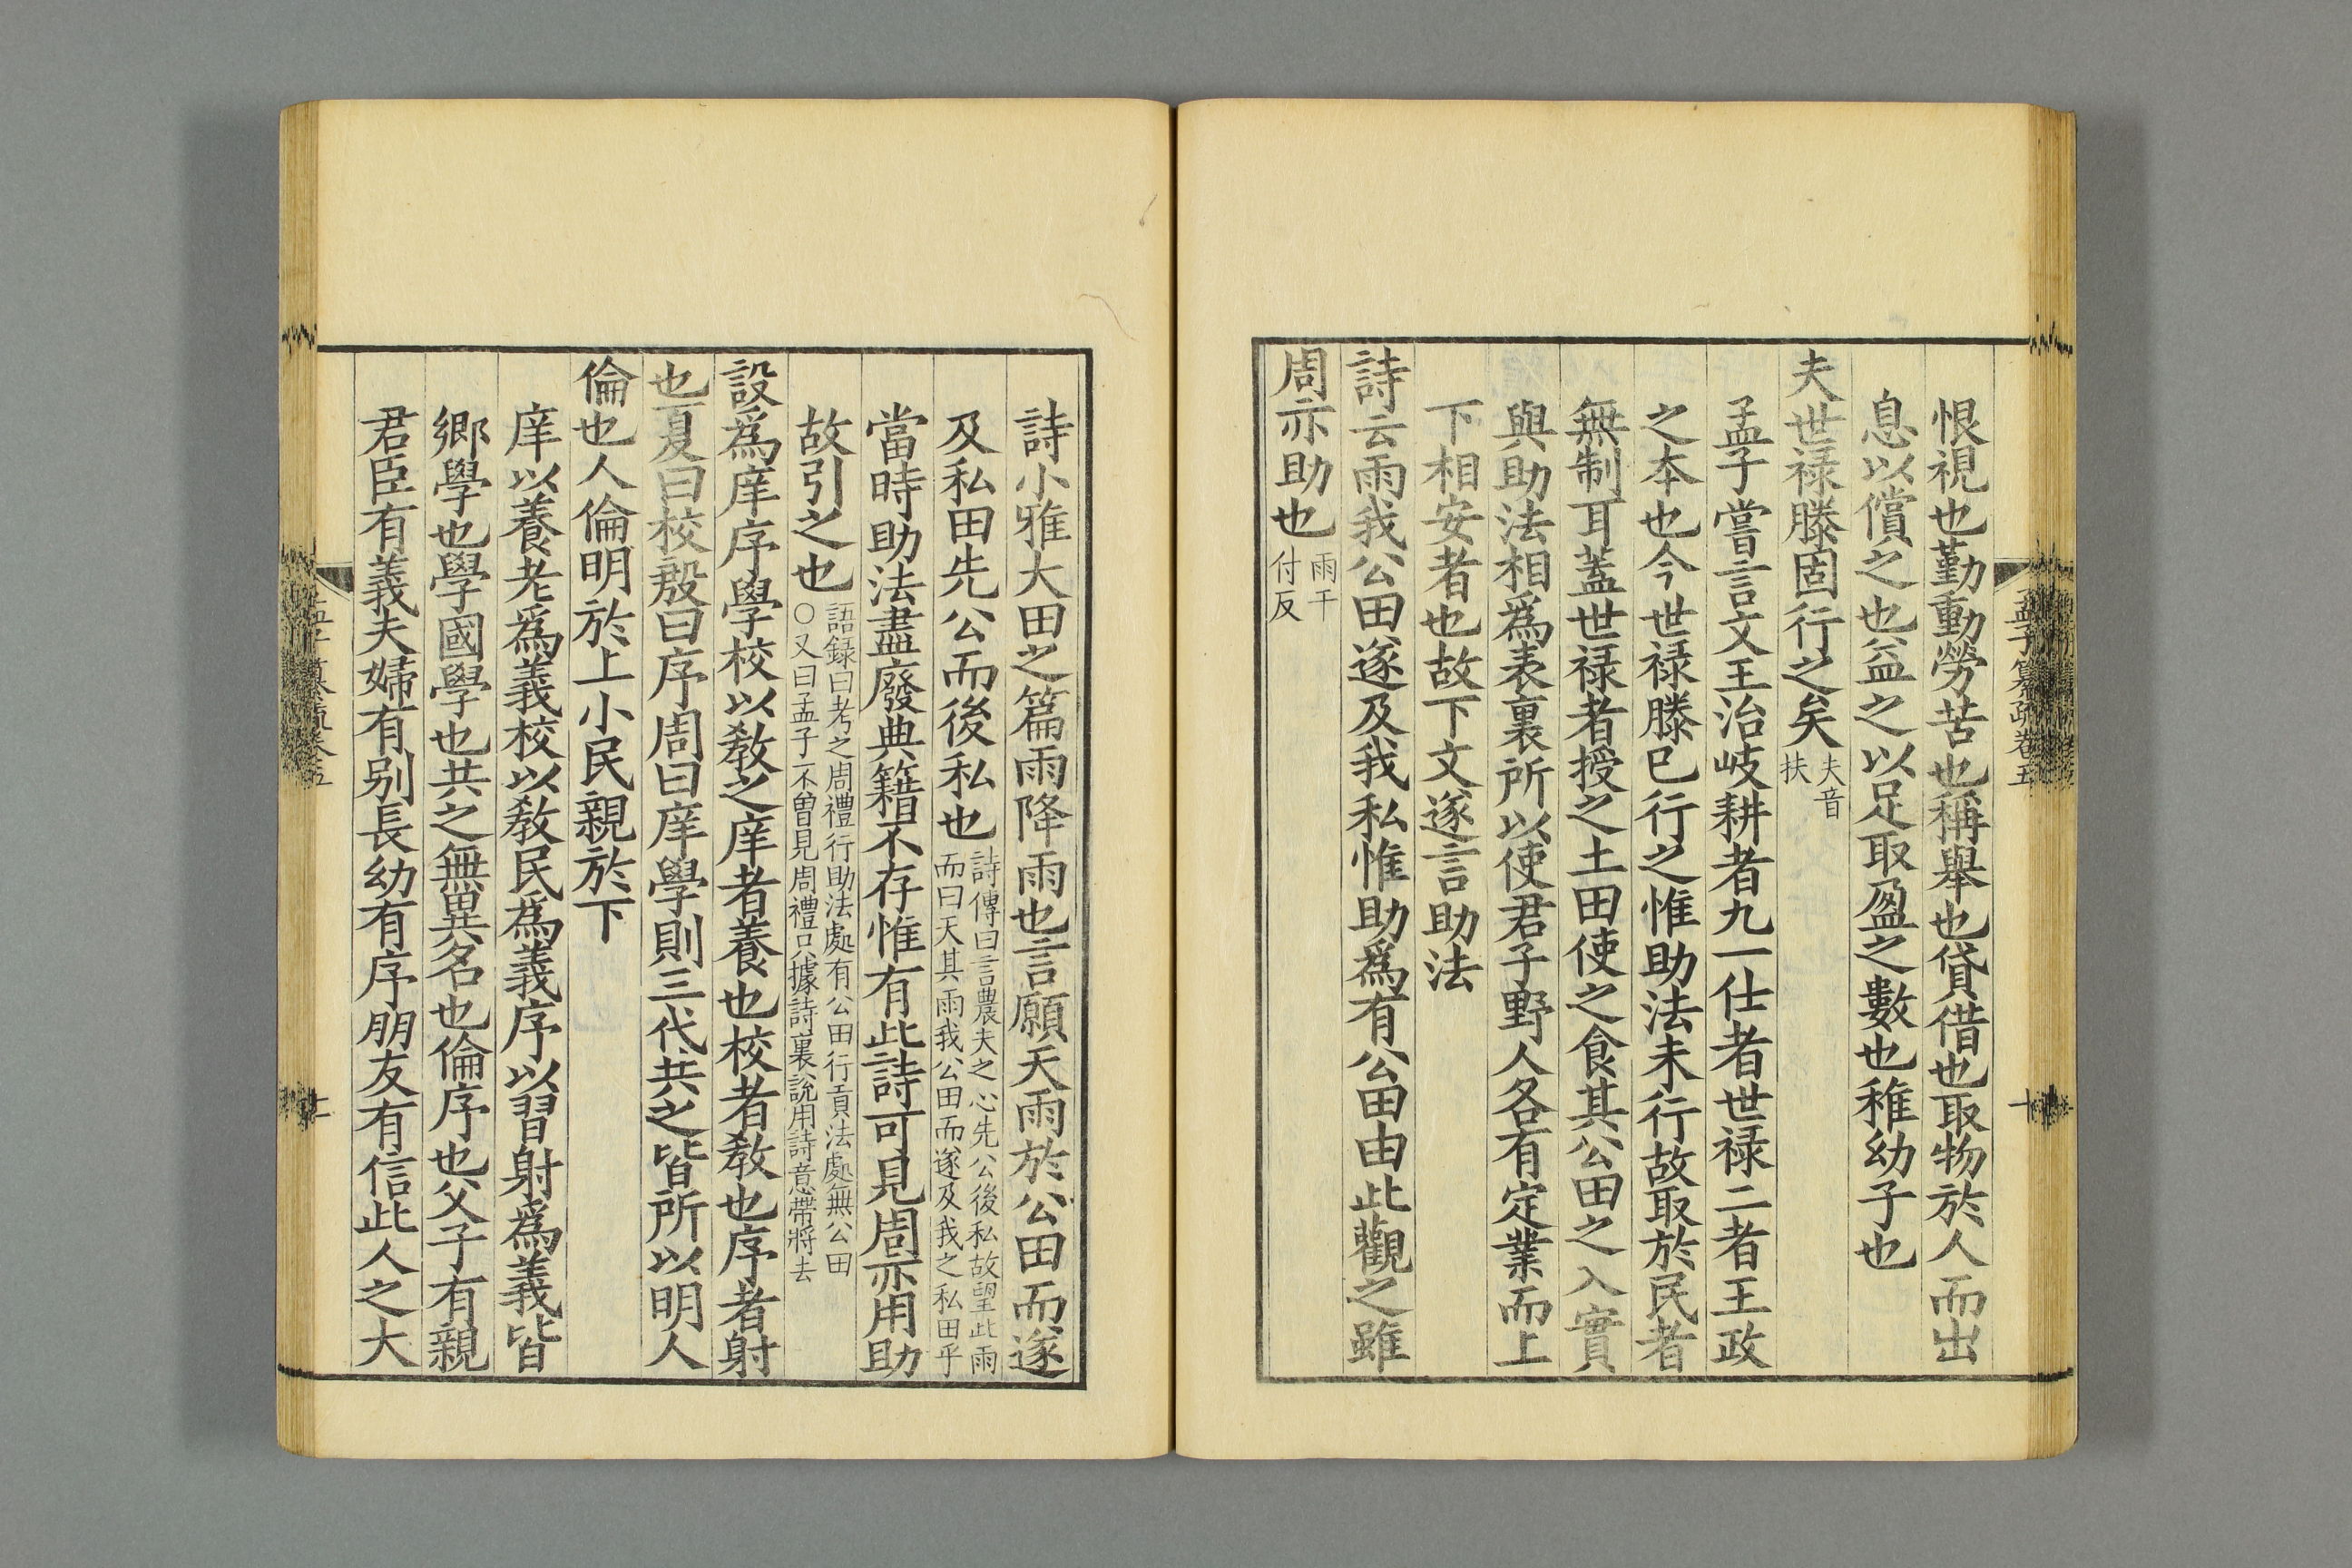 孟子纂疏卷五
十
恨視也勤動勞苦也稱舉也貸借也取物於人而出
息以償之也益之以足取盈之數也稚幼子也
夫世禄滕固行之矣夫音扶
孟子嘗言文王治岐耕者九一仕者世禄二者王政
之本也今世禄滕已行之惟助法未行故取於民者
無制耳蓋世禄者授之土田使之食其公田之入實
與助法相爲表裏所以使君子野人各有定業而上
下相安者也故下文遂言助法
詩云雨我公田遂及我私惟助爲有公田由此觀之雖
周亦助也雨于付反
詩小雅大田之篇雨降雨也言願天雨於公田而遂
及私田先公而後私也詩傳曰言農夫之心先公後私故望此雨而曰天其雨我公田而遂及我之私田乎
當時助法盡廢典籍不存惟有此詩可見周亦用助
故引之也語録曰考之周禮行助法處有公田行貢法處無公田○又曰孟子不曾見周禮只據詩裏説用詩意帶將去
設爲庠序學校以敎之庠者養也校者敎也序者射
也夏曰校殷曰序周曰庠學則三代共之皆所以明人
倫也人倫明於上小民親於下
庠以養老爲義校以敎民爲義序以習射爲義皆
鄉學也學國學也共之無異名也倫序也父子有親
君臣有義夫婦有别長幼有序朋友有信此人之大